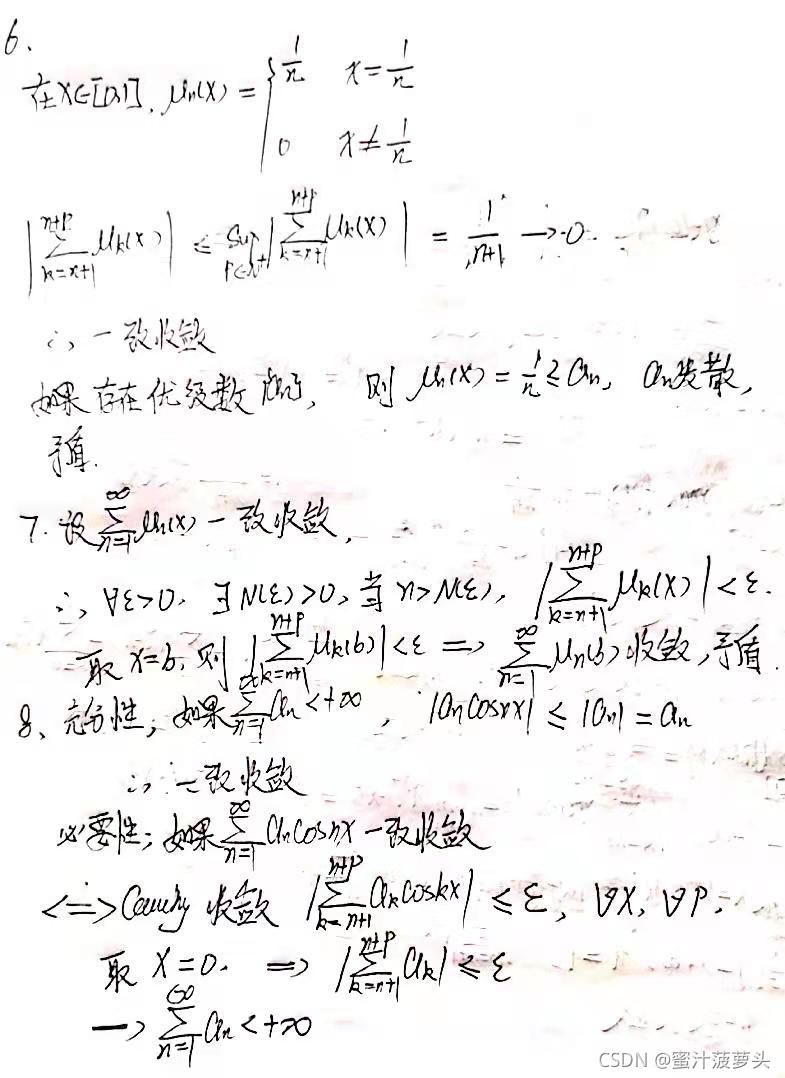 6.
在x∈[0,1], μn(x) = { 1/n x = 1/n
0 x ≠ 1/n
|∑_{k=n+1}^{n+p} μk(x)| ≤ sup_{p∈N+} |∑_{k=n+1}^{n+p} μk(x)| = 1/(n+1) → 0
∴ 一致收敛
如果存在优级数, 则 μn(x) = 1/n ≤ an, an发散,
矛盾.
7. 设∑_{n=1}^{∞} μn(x) 一致收敛,
∴ ∀ε>0. ∃N(ε)>0, 当 n>N(ε), |∑_{k=n+1}^{n+p} μk(x)| < ε.
取 x=b, 则 |∑_{k=n+1}^{n+p} μk(b)| < ε ⇒ ∑_{n=1}^{∞} μn(b) 收敛, 矛盾.
8、充分性; 如果∑_{n=1}^{∞} an < +∞, |an cosnx| ≤ |an| = an
∴ 一致收敛
必要性; 如果∑_{n=1}^{∞} an cosnx 一致收敛
<=> Cauchy 收敛 |∑_{k=n+1}^{n+p} ak coskx| ≤ ε, ∀x, ∀p,
取 x=0. ⇒ |∑_{k=n+1}^{n+p} ak| ≤ ε
→ ∑_{n=1}^{∞} an < +∞
CSDN @蜜汁菠萝头